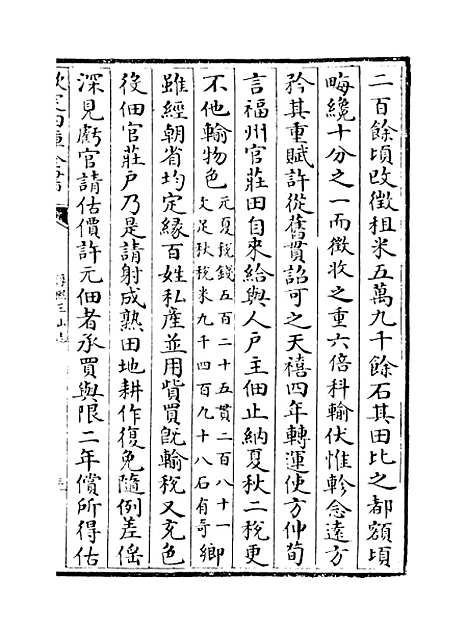 二百餘頃改徴租米五萬九千餘石其田比之都額頃
畮纔十分之一而徴收之重六倍科輸伏惟軫念遠方
矜其重賦許從舊貫詔可之天禧四年轉運使方仲荀
言福州官莊田自來給與人戸主佃止納夏秋二稅更
不他輸物色元夏稅錢五百二十五貫二百八十一
文足秋稅米九千四百九十八石有奇鄉
雖經朝省均定緣百姓私產並用貲買旣輸稅又充色
役佃官莊戸乃是請射成熟田地耕作復免隨例差徭
深見虧官請估價許元佃者承買與限二年償所得估
欽定四庫全書
淳熙三山志